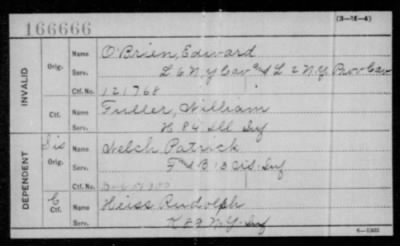 (3-15-4)
166666
INVALID
Orig.
Name O'Brien, Edward
Serv. L 6 N.Y. Cav and L 2 N.Y. Prov Cav
Ctf. No. 121768
Ctf.
Name Fuller, William
Serv. H 84 Ill Inf
DEPENDENT
Dis
Orig.
Name Welch Patrick
Serv. F and B 13 Inf
Ctf. No.
C
Ctf.
Name Heiss Rudolph
Serv. N.Y. Inf